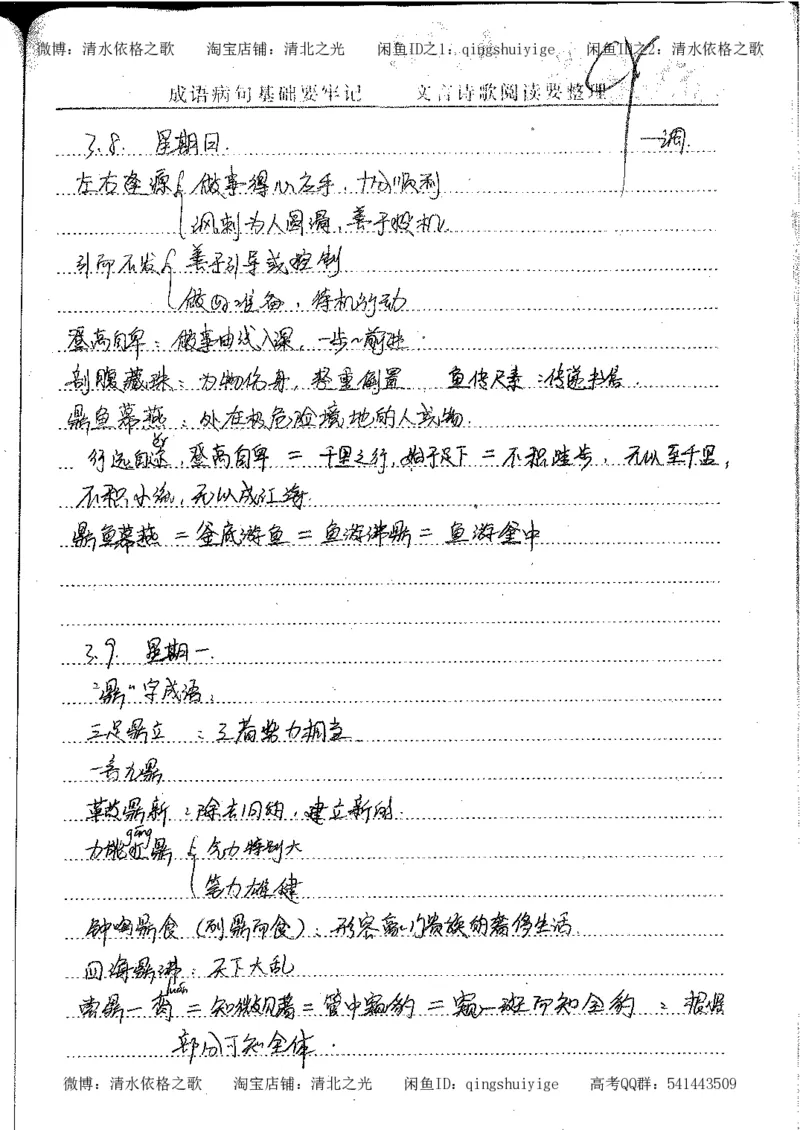 微博：清水依格之歌 淘宝店铺：清北之光 闲鱼ID之1：qingshuiyige 闲鱼ID之2：清水依格之歌
成语病句基础要牢记 文言诗歌阅读要整理
3.8. 星期日. 一调.
左右逢源{ 做事得心应手，十分顺利
讽刺为人圆滑，善于投机.
引而不发{ 善于引导或控制
做好准备，待机行动
登高自卑：做事由浅入深，一步~前进.
剖腹藏珠：为物伤身，轻重倒置 鱼传尺素：传递书信.
鼎鱼幕燕：处在极危险境地的人或物.
行远自迩，登高自卑 = 千里之行，始于足下 = 不积跬步，无以至千里，
不积小流，无以成江海.
鼎鱼幕燕 = 釜底游鱼 = 鱼游沸鼎 = 鱼游釜中
3.9. 星期一.
“鼎”字成语：
三足鼎立 ：三者势力相当
一言九鼎
革故鼎新：除去旧的，建立新的.
gāng
力能扛鼎{ 气力特别大
笔力雄健
钟鸣鼎食（列鼎而食）：形容豪门贵族的奢侈生活.
四海鼎沸：天下大乱
luán
尝鼎一脔 = 知微见著 = 管中窥豹 = 窥一斑而知全豹 ：根据
部分可知全体.
微博：清水依格之歌 淘宝店铺：清北之光 闲鱼ID：qingshuiyige 高考QQ群：541443509